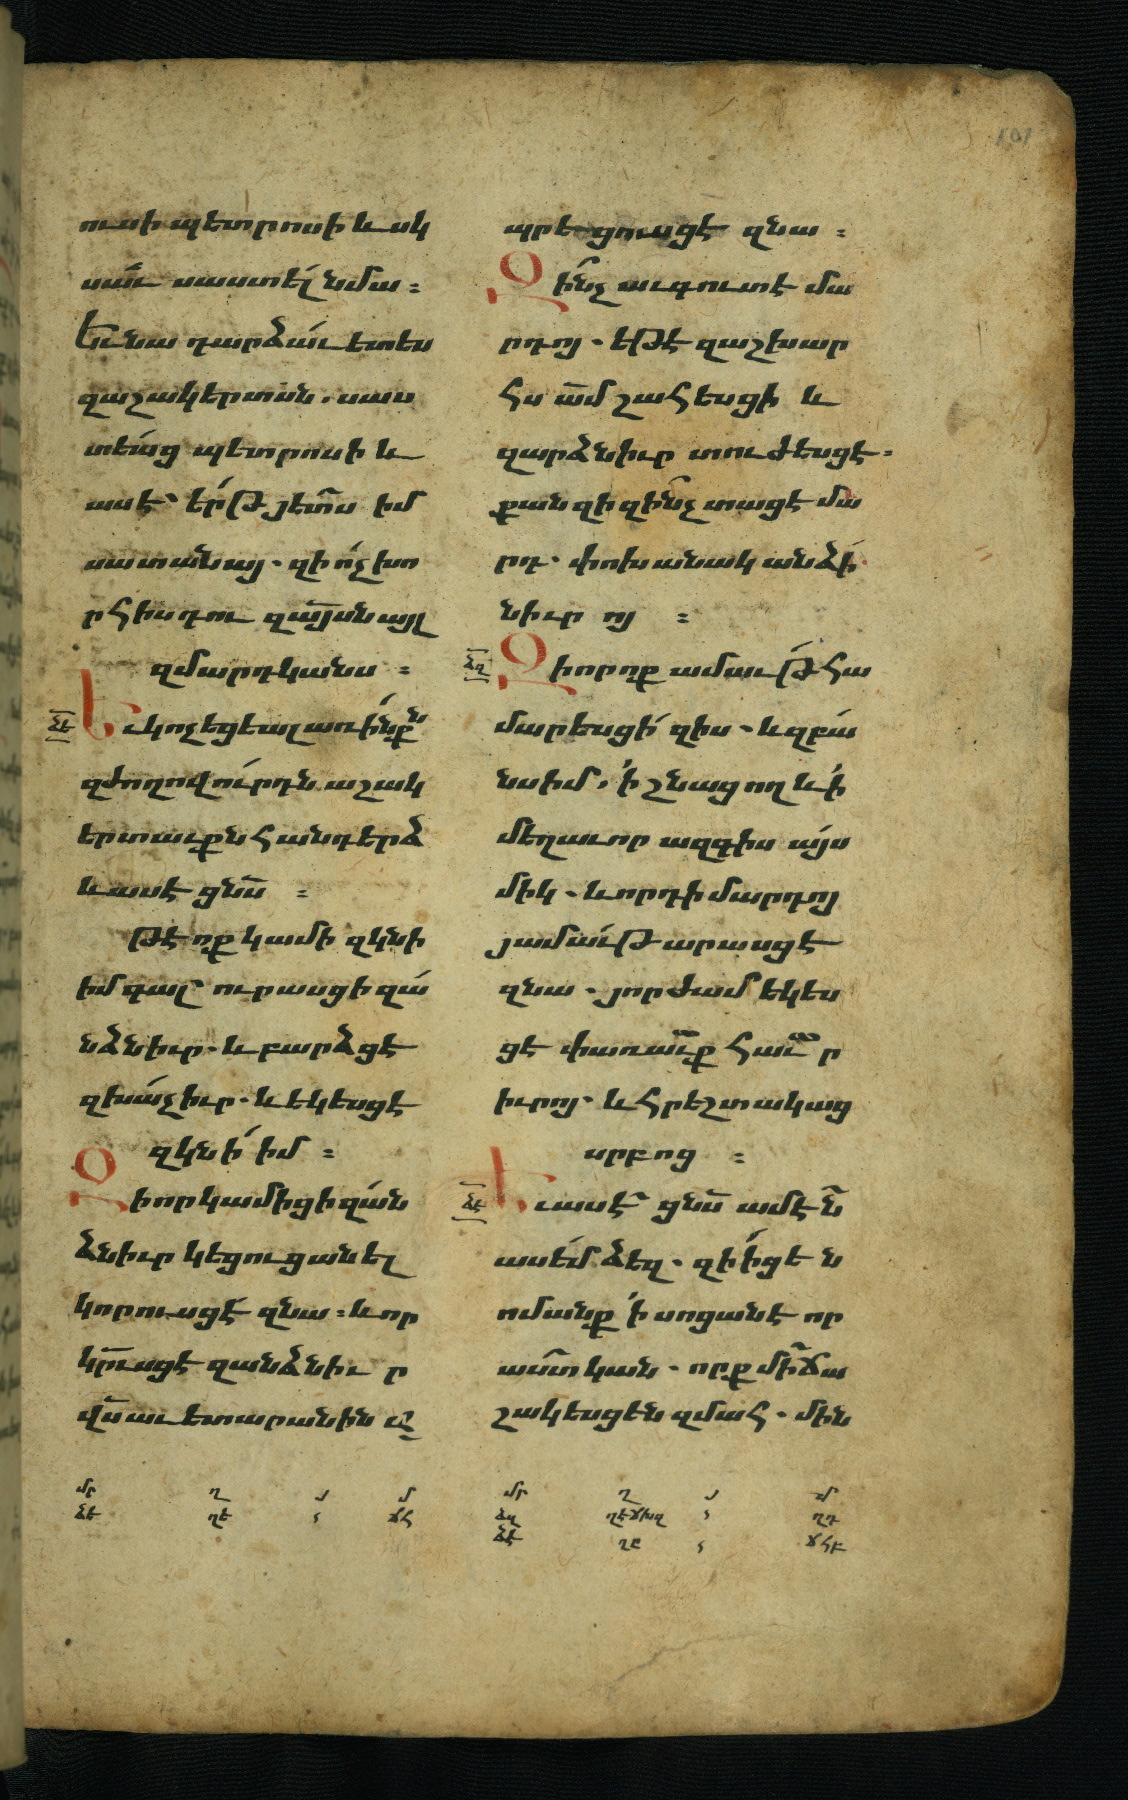 ուսի պետրոսի և սկ
սաւ սաստել նմա ։
Եւ նա դարձաւ ետես
զաշակերտսն. սաս
տեաց պետրոսի և
ասէ՝ երթ յետս իմ
սատանայ. զի ոչ խո
րհիս դու զայսն այլ
զմարդկանս ։
ձե
Եւ կոչեցեալ առ ինքն
զժողովուրդն աշակ
երտաւքն հանդերձ
և ասէ ցնս ։
Թէ ոք կամի զկնի
իմ գալ՝ ուրասցի զա
նձնիւր. և բարձցէ
զխաչ իւր. և եկեսցէ
զկնի իմ ։
Զի որ կամիցի զան
ձնիւր կեցուցանել
կորուսցէ զնա ։ և որ
կրուսցէ զանձնիւ ր
վս աւետարանին ա՛
պրեցուսցէ զնա ։
Զինչ աւգուտ է մա
րդոյ. եթէ զաշխար
հս ամ շահեսցի և
զարձնիւր տուժեսցէ.
քանզի զինչ տացէ մա
րդ. փոխանակ անձի
նիւր ոյ ։
ձզ
Զի որ ոք ամաւթ հա
մարեսցի զիս. և զբա
նս իմ. ՛ի շնացող և ՛ի
մեղաւոր ազգիս այս
միկ. և որդի մարդոյ
յամաւթ արասցէ
զնա. յորժամ եկես
ցէ փառաւք հաւր
իւրոյ. և հրեշտակաց
սրբոց ։
ձէ
Եւ ասէ ցնս ամէն
ասեմ ձեզ. զի իցեն
ոմանք ՛ի սոցանէ որ
աստ կան. որք մի ճա
շակեսցեն զմահ. մին
մր ղ յ մ
ձե ղե ճհ
մր ղ յ մ
ձզ ղե ճխզ ղդ
ձէ ղը ճհբ